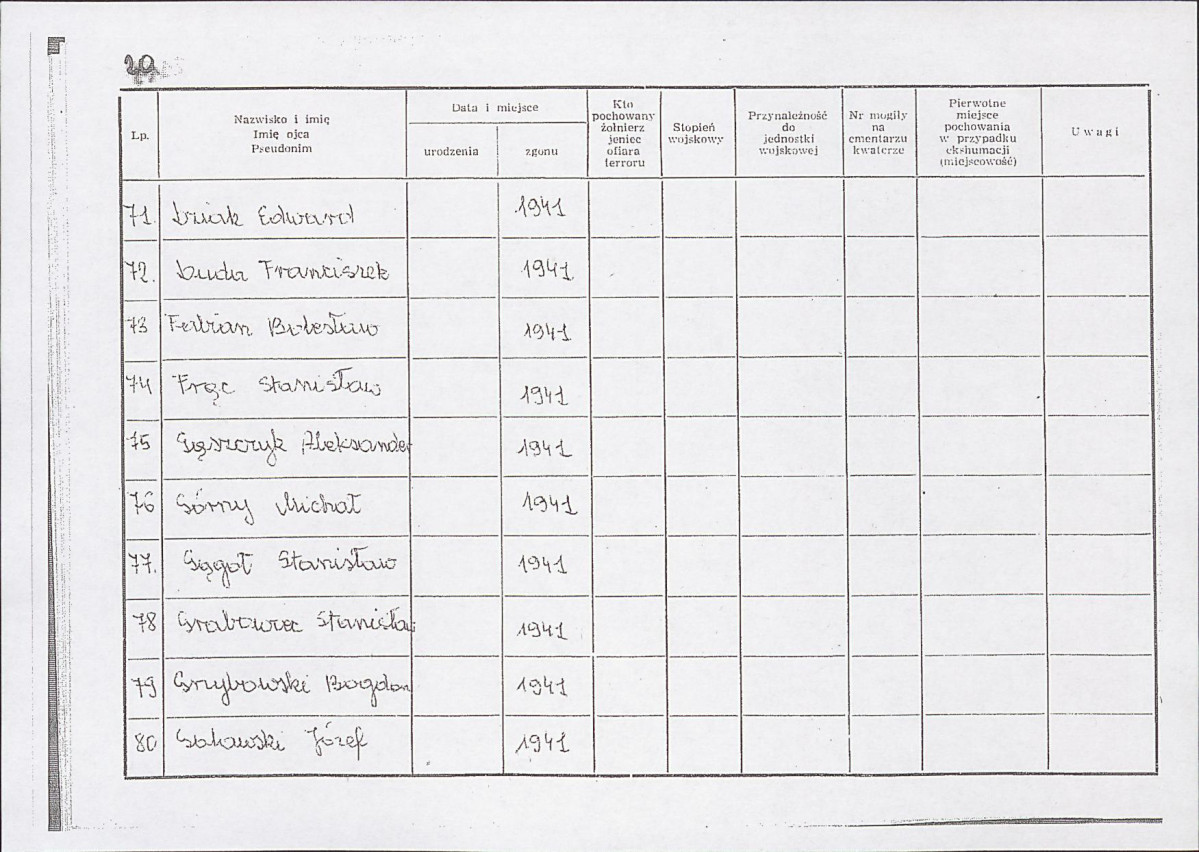 20
Lp.
Nazwisko i imię
Imię ojca
Pseudonim
Data i miejsce
urodzenia
zgonu
Kto
pochowany
żołnierz
jeniec
ofiara
terroru
Stopień
wojskowy
Przynależność
do
jednostki
wojskowej
Nr mogiły
na
cmentarzu
kwaterze
Pierwotne
miejsce
pochowania
w przypadku
ekshumacji
(miejscowość)
Uwagi
71. Edward 1941
72. Duda Franciszek 1941
73 Fabian Bolesław 1941
74 Frąc Stanisław 1941
75 Gąszczyk Aleksander 1941
76 Górny Michał 1941
77. Gągoł Stanisław 1941
78 Grabowiec Stanisław 1941
79 Grzybowski Bogdan 1941
80 Józef 1941